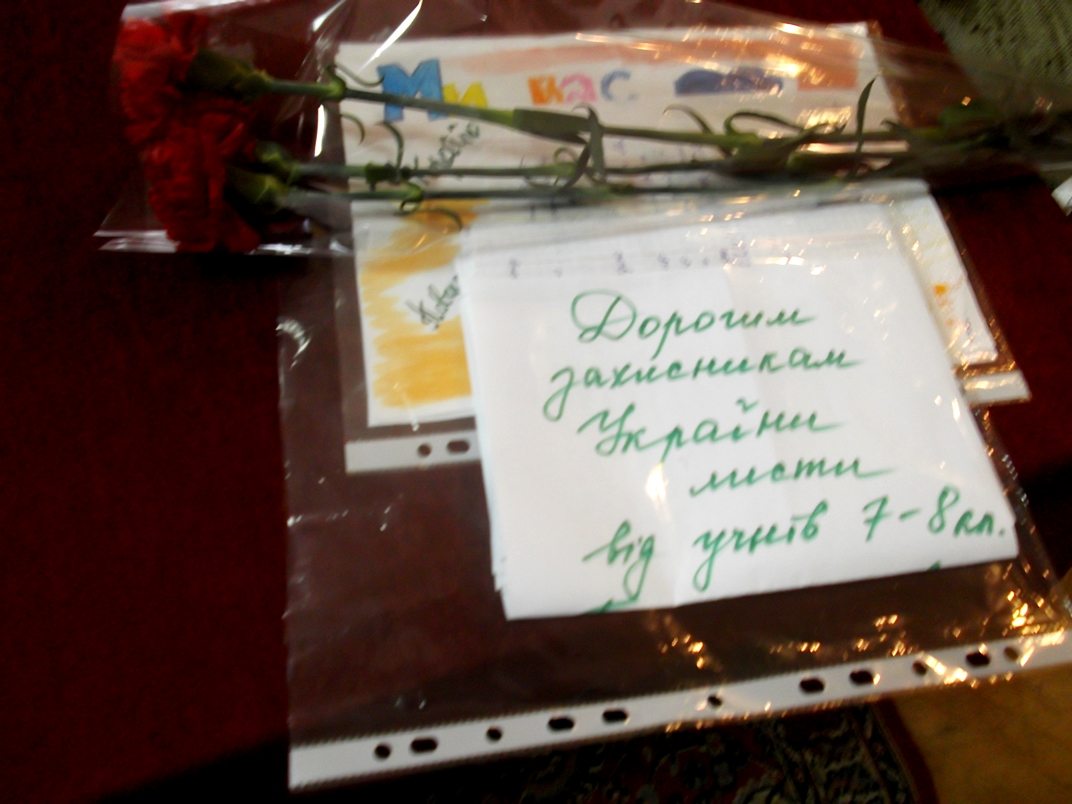 Ми вас
Дорогим
захисникам
України
листи
від учнів 7-8 кл.